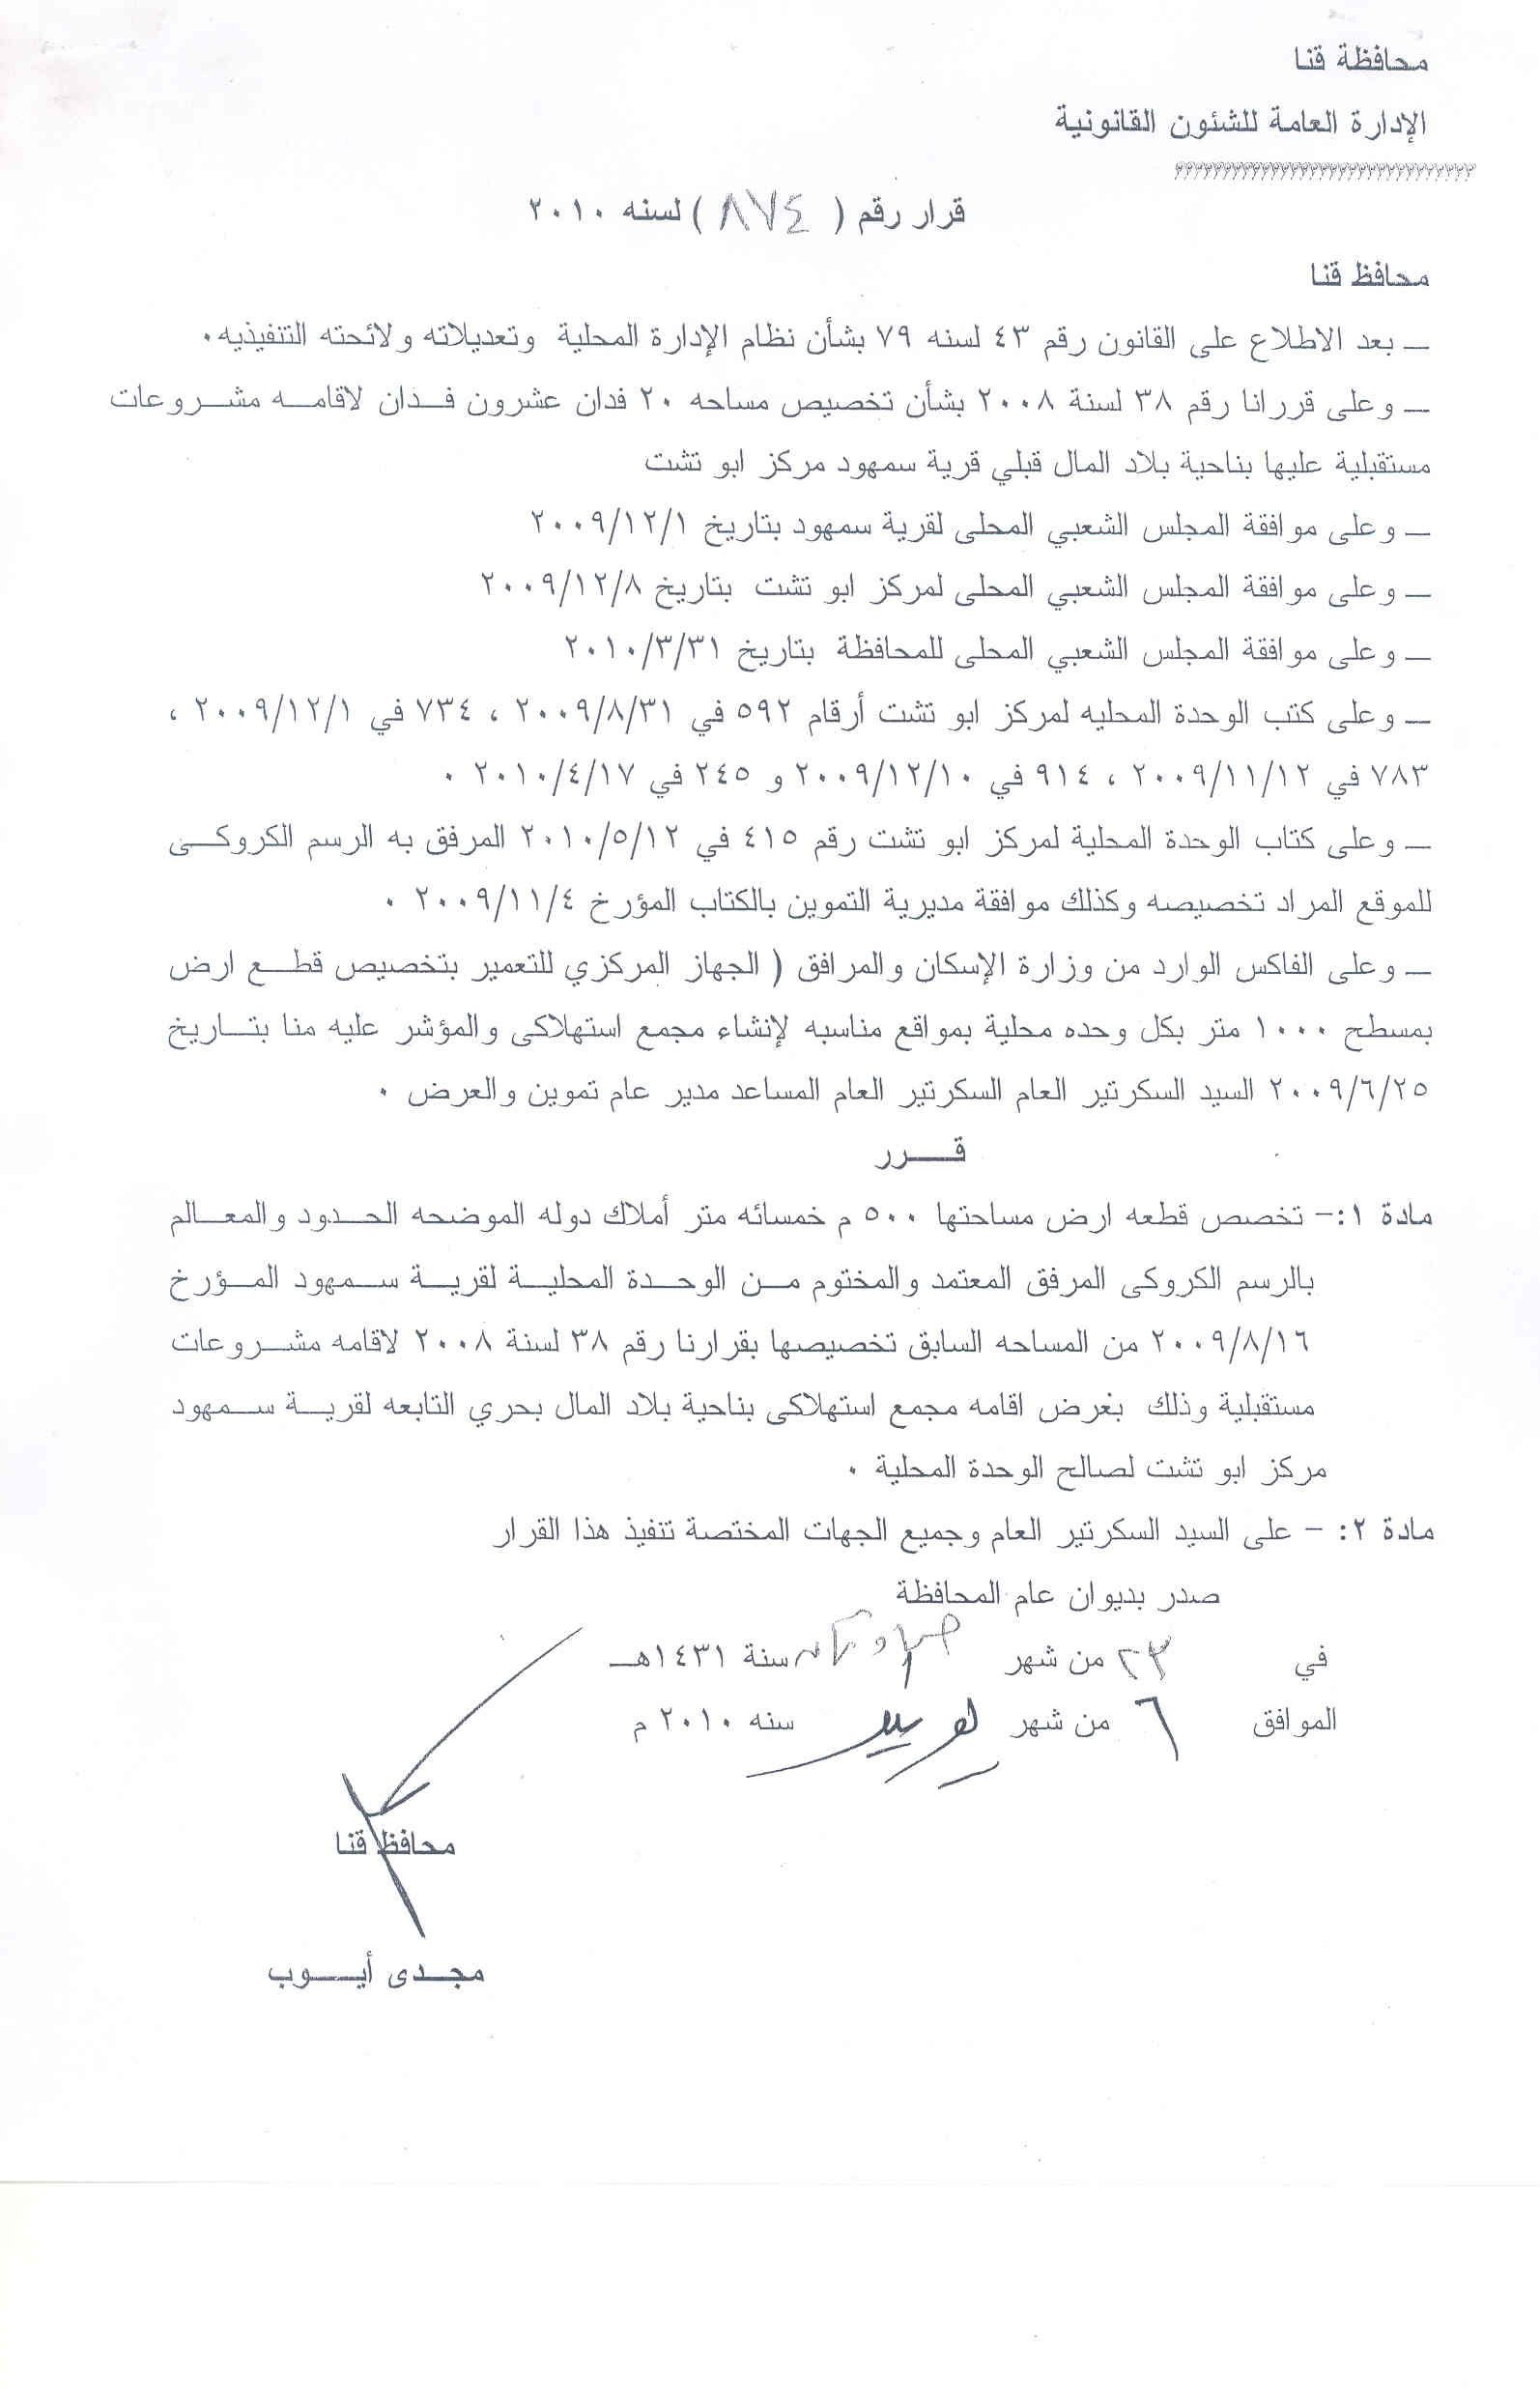 محافظة قنا
الإدارة العامة للشئون القانونية
قرار رقم ( ٨٧٤ ) لسنه ٢٠١٠
محافظ قنا
ــ بعد الاطلاع على القانون رقم ٤٣ لسنه ٧٩ بشأن نظام الإدارة المحلية وتعديلاته ولائحته التنفيذيه.
ــ وعلى قررانا رقم ٣٨ لسنة ٢٠٠٨ بشأن تخصيص مساحه ٢٠ فدان عشرون فـدان لاقامـه مشـروعات
مستقبلية عليها بناحية بلاد المال قبلي قرية سمهود مركز ابو تشت
ــ وعلى موافقة المجلس الشعبي المحلى لقرية سمهود بتاريخ ٢٠٠٩/١٢/١
ــ وعلى موافقة المجلس الشعبي المحلى لمركز ابو تشت بتاريخ ٢٠٠٩/١٢/٨
ــ وعلى موافقة المجلس الشعبي المحلى للمحافظة بتاريخ ٢٠١٠/٣/٣١
ــ وعلى كتب الوحدة المحليه لمركز ابو تشت أرقام ٥٩٢ في ٢٠٠٩/٨/٣١ ، ٧٣٤ في ٢٠٠٩/١٢/١ ،
٧٨٣ في ٢٠٠٩/١١/١٢ ، ٩١٤ في ٢٠٠٩/١٢/١٠ و ٢٤٥ في ٢٠١٠/٤/١٧ .
ــ وعلى كتاب الوحدة المحلية لمركز ابو تشت رقم ٤١٥ في ٢٠١٠/٥/١٢ المرفق به الرسم الكروكـى
للموقع المراد تخصيصه وكذلك موافقة مديرية التموين بالكتاب المؤرخ ٢٠٠٩/١١/٤ .
ــ وعلى الفاكس الوارد من وزارة الإسكان والمرافق ( الجهاز المركزي للتعمير بتخصيص قطـع ارض
بمسطح ١٠٠٠ متر بكل وحده محلية بمواقع مناسبه لإنشاء مجمع استهلاكى والمؤشر عليه منا بتـاريخ
٢٠٠٩/٦/٢٥ السيد السكرتير العام السكرتير العام المساعد مدير عام تموين والعرض .
قــرر
مادة ١:- تخصص قطعه ارض مساحتها ٥٠٠ م خمسائه متر أملاك دوله الموضحه الحـدود والمعـالم
بالرسم الكروكى المرفق المعتمد والمختوم مـن الوحـدة المحليـة لقريـة سـمهود المـؤرخ
٢٠٠٩/٨/١٦ من المساحه السابق تخصيصها بقرارنا رقم ٣٨ لسنة ٢٠٠٨ لاقامه مشـروعات
مستقبلية وذلك بغرض اقامه مجمع استهلاكى بناحية بلاد المال بحري التابعه لقريـة سـمهود
مركز ابو تشت لصالح الوحدة المحلية .
مادة ٢: - على السيد السكرتير العام وجميع الجهات المختصة تنفيذ هذا القرار
صدر بديوان عام المحافظة
في ٢٣ من شهر سنة ١٤٣١هـ
الموافق ٦ من شهر سنه ٢٠١٠ م
محافظ قنا
مجـدى أيـــوب